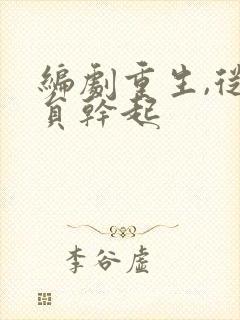 編劇重生,從
員幹起
李谷虛